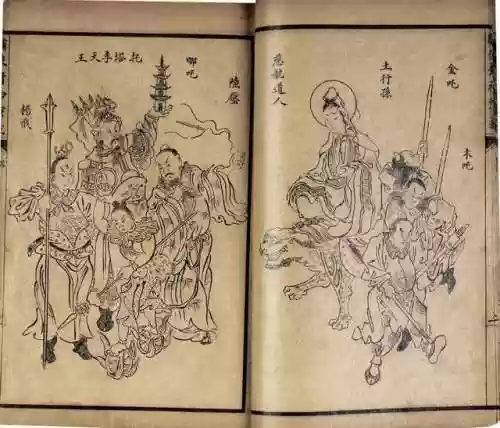 金吒
木吒
土行孫
慈航道人
陸壓
哪吒
托塔李天王
楊戩